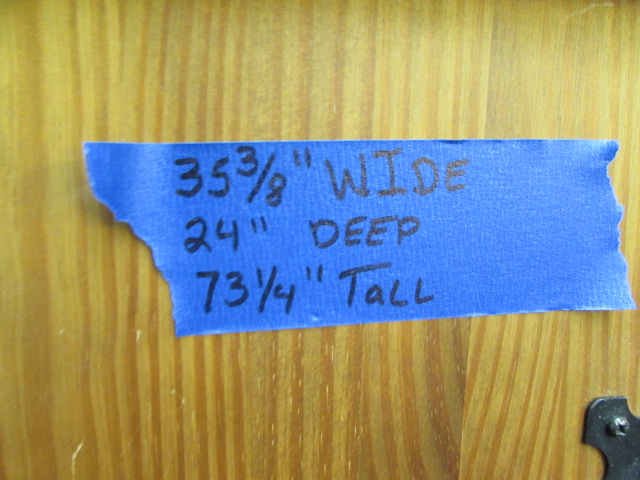 35 3/8" WIDE
24" DEEP
73 1/4" TaLL